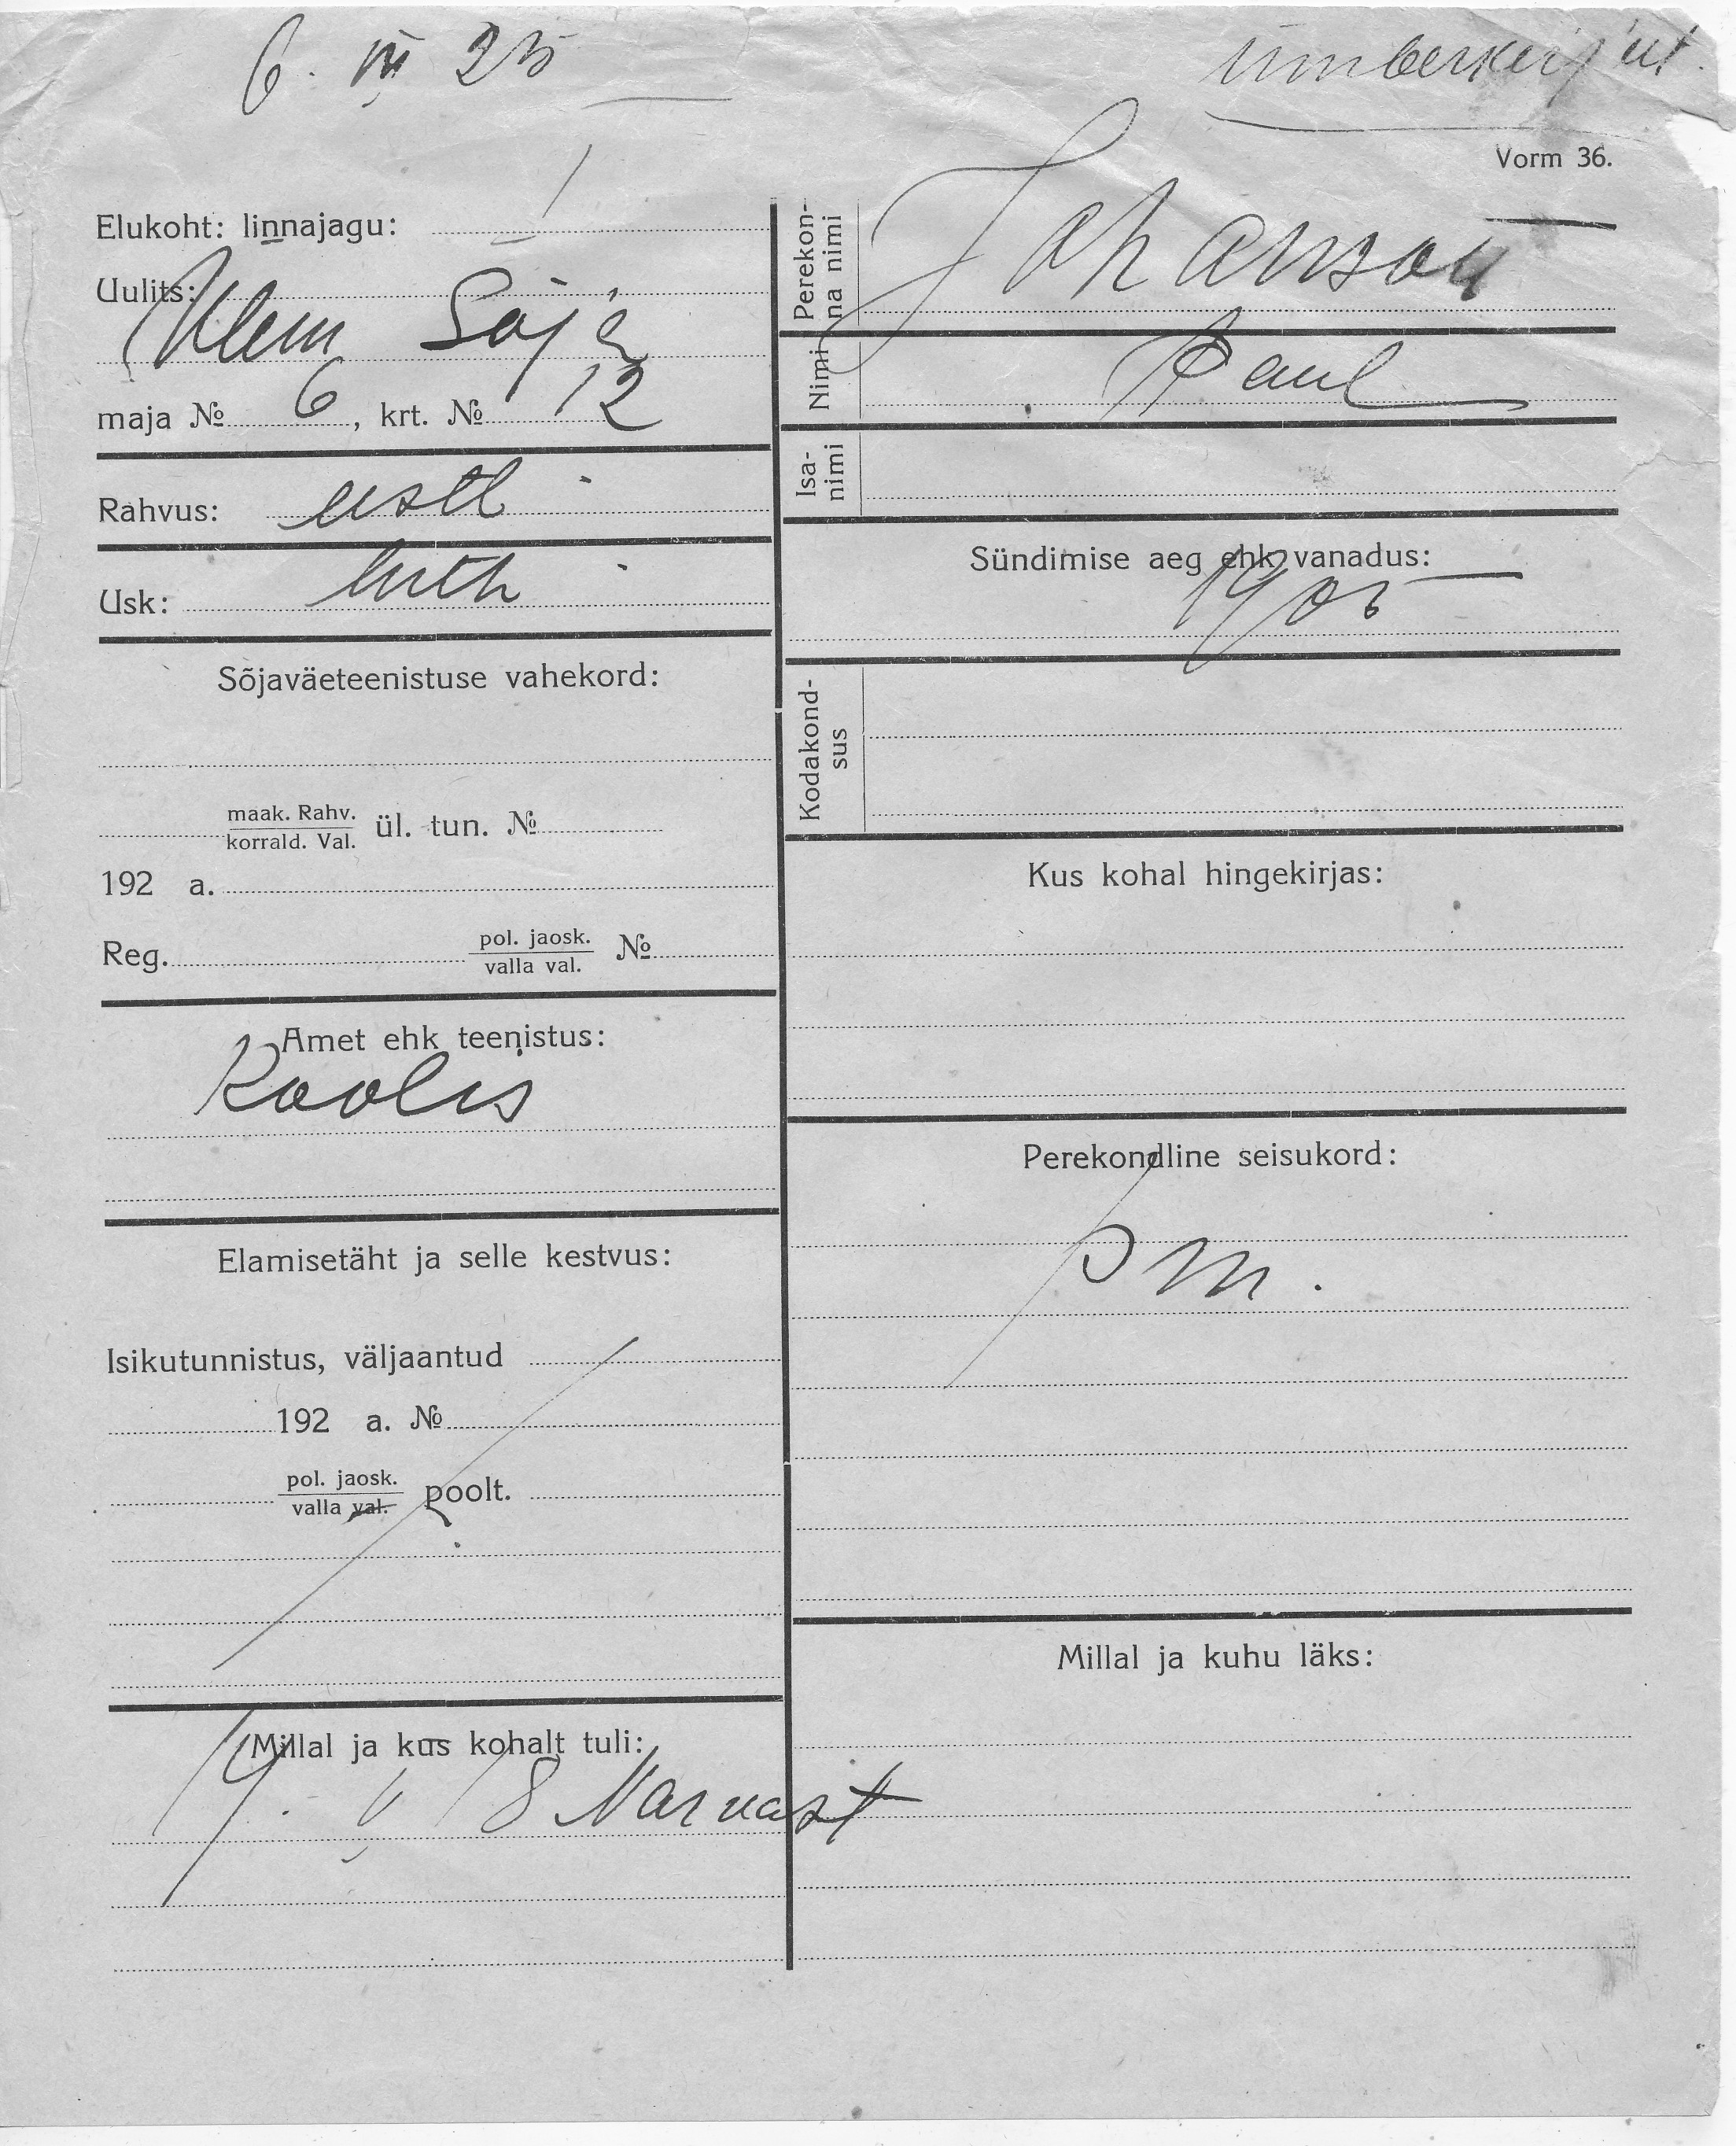 6. VII 25
ümberkirjut.
Vorm 36.
Elukoht: linnajagu:
Uulits:
Sõja
maja № 6, krt. № 12
Rahvus: eestl
Usk: luth
Sõjaväeteenistuse vahekord:
maak. Rahv.
korrald. Val. ül. tun. №
192 a.
Reg. pol. jaosk.
valla val. №
Amet ehk teenistus:
Koolis
Elamisetäht ja selle kestvus:
Isikutunnistus, väljaantud
192 a. №
pol. jaosk.
valla val. poolt.
Millal ja kus kohalt tuli:
V 18 Narvast
Perekon-
na nimi Johanson
Nimi Paul
Isa-
nimi
Sündimise aeg ehk vanadus:
1905
Kodakond-
sus
Kus kohal hingekirjas:
Perekondline seisukord:
Millal ja kuhu läks: